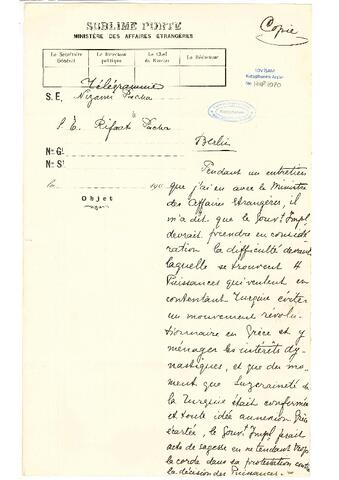 SUBLIME PORTE
MINISTÈRE DES AFFAIRES ÉTRANGÈRES
Copie
Le Secrétaire Général
Le Directeur politique
Le Chef du Bureau
Le Rédacteur
Télégramme
S. E. Nizami Pacha
à
S. E. Rifaat Pacha
No. Gl.
No. Sl.
Le 190
Objet
Berlin
Pendant un entretien
que j'ai eu avec le Ministre
des Affaires Etrangères, il
m'a dit que le Gouvt Impl
devrait prendre en considé
ration la difficulté devant
laquelle se trouvent 4
Puissances qui veulent en
contentant Turquie éviter
un mouvement révolu
tionnaire en Grèce et y
ménager les intérêts dy
nastiques, et que du mo
ment que Suzeraineté de
la Turquie était confirmée
et toute idée annexion Grèce
écartée, le Gouvt Impl ferait
acte de sagesse en ne tendant trop
la corde dans sa protestation contre
la décision des Puissances.